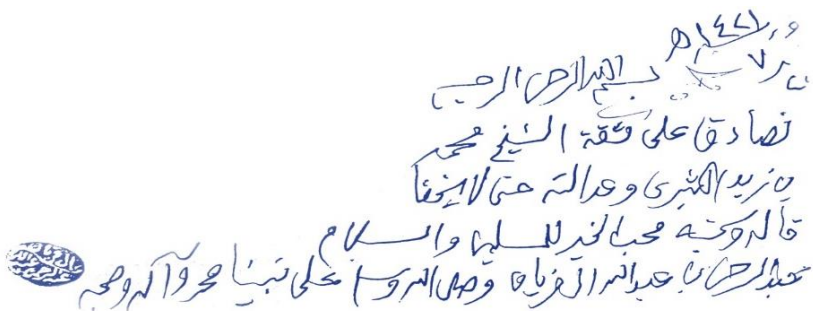 ١٤٢١هـ
بسم الله الرحمن الرحيم
نصادق على ثقة الشيخ محمد
بن زيد وعدالته حتى لا يخفا
قاله وكتبه محب الخير للمسلمين والسلام
عبدالرحمن بن عبدالله الفريان وصلى الله وسلم على نبينا محمد وآله وصحبه